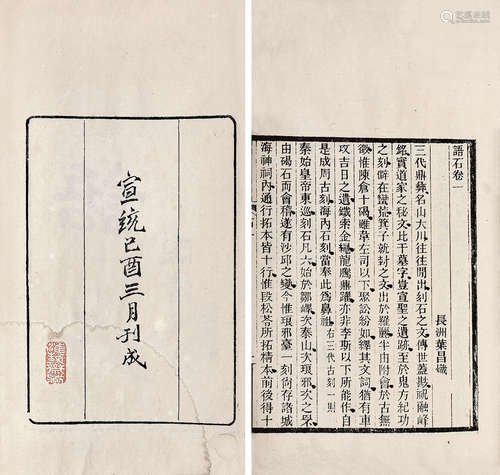 語石卷一
長洲葉昌熾
三代鼎彝名山大川往往間出刻石之文傳世蓋尠祝融峰
銘實道家之秘文比干墓字豈宣聖之遺跡至於鬼方紀功
之刻僻在蠻荒箕子就封之文出於羅麗半由附會於古無
徵惟陳倉十碣雖草左司以下聚訟紛如繹其文詞猶有車
攻吉日之遺鐵索金繩龍騰鼎躍亦非李斯以下所能作自
是成周古刻海內石刻當奉此為鼻祖 右三代古刻一則
秦始皇帝東巡刻石凡六始於鄒嶧次泰山次琅邪次之罘
由碣石而會稽遂有沙邱之變今惟琅邪臺一刻尚存諸城
海神祠內通行拓本皆十行惟段松苓所拓精本前後得十
宣統己酉三月刊成